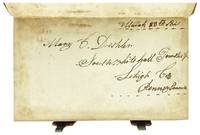 March 28th
Mary C. Deshler
South Whitehall Township
Lehigh Co
Pennsylvania